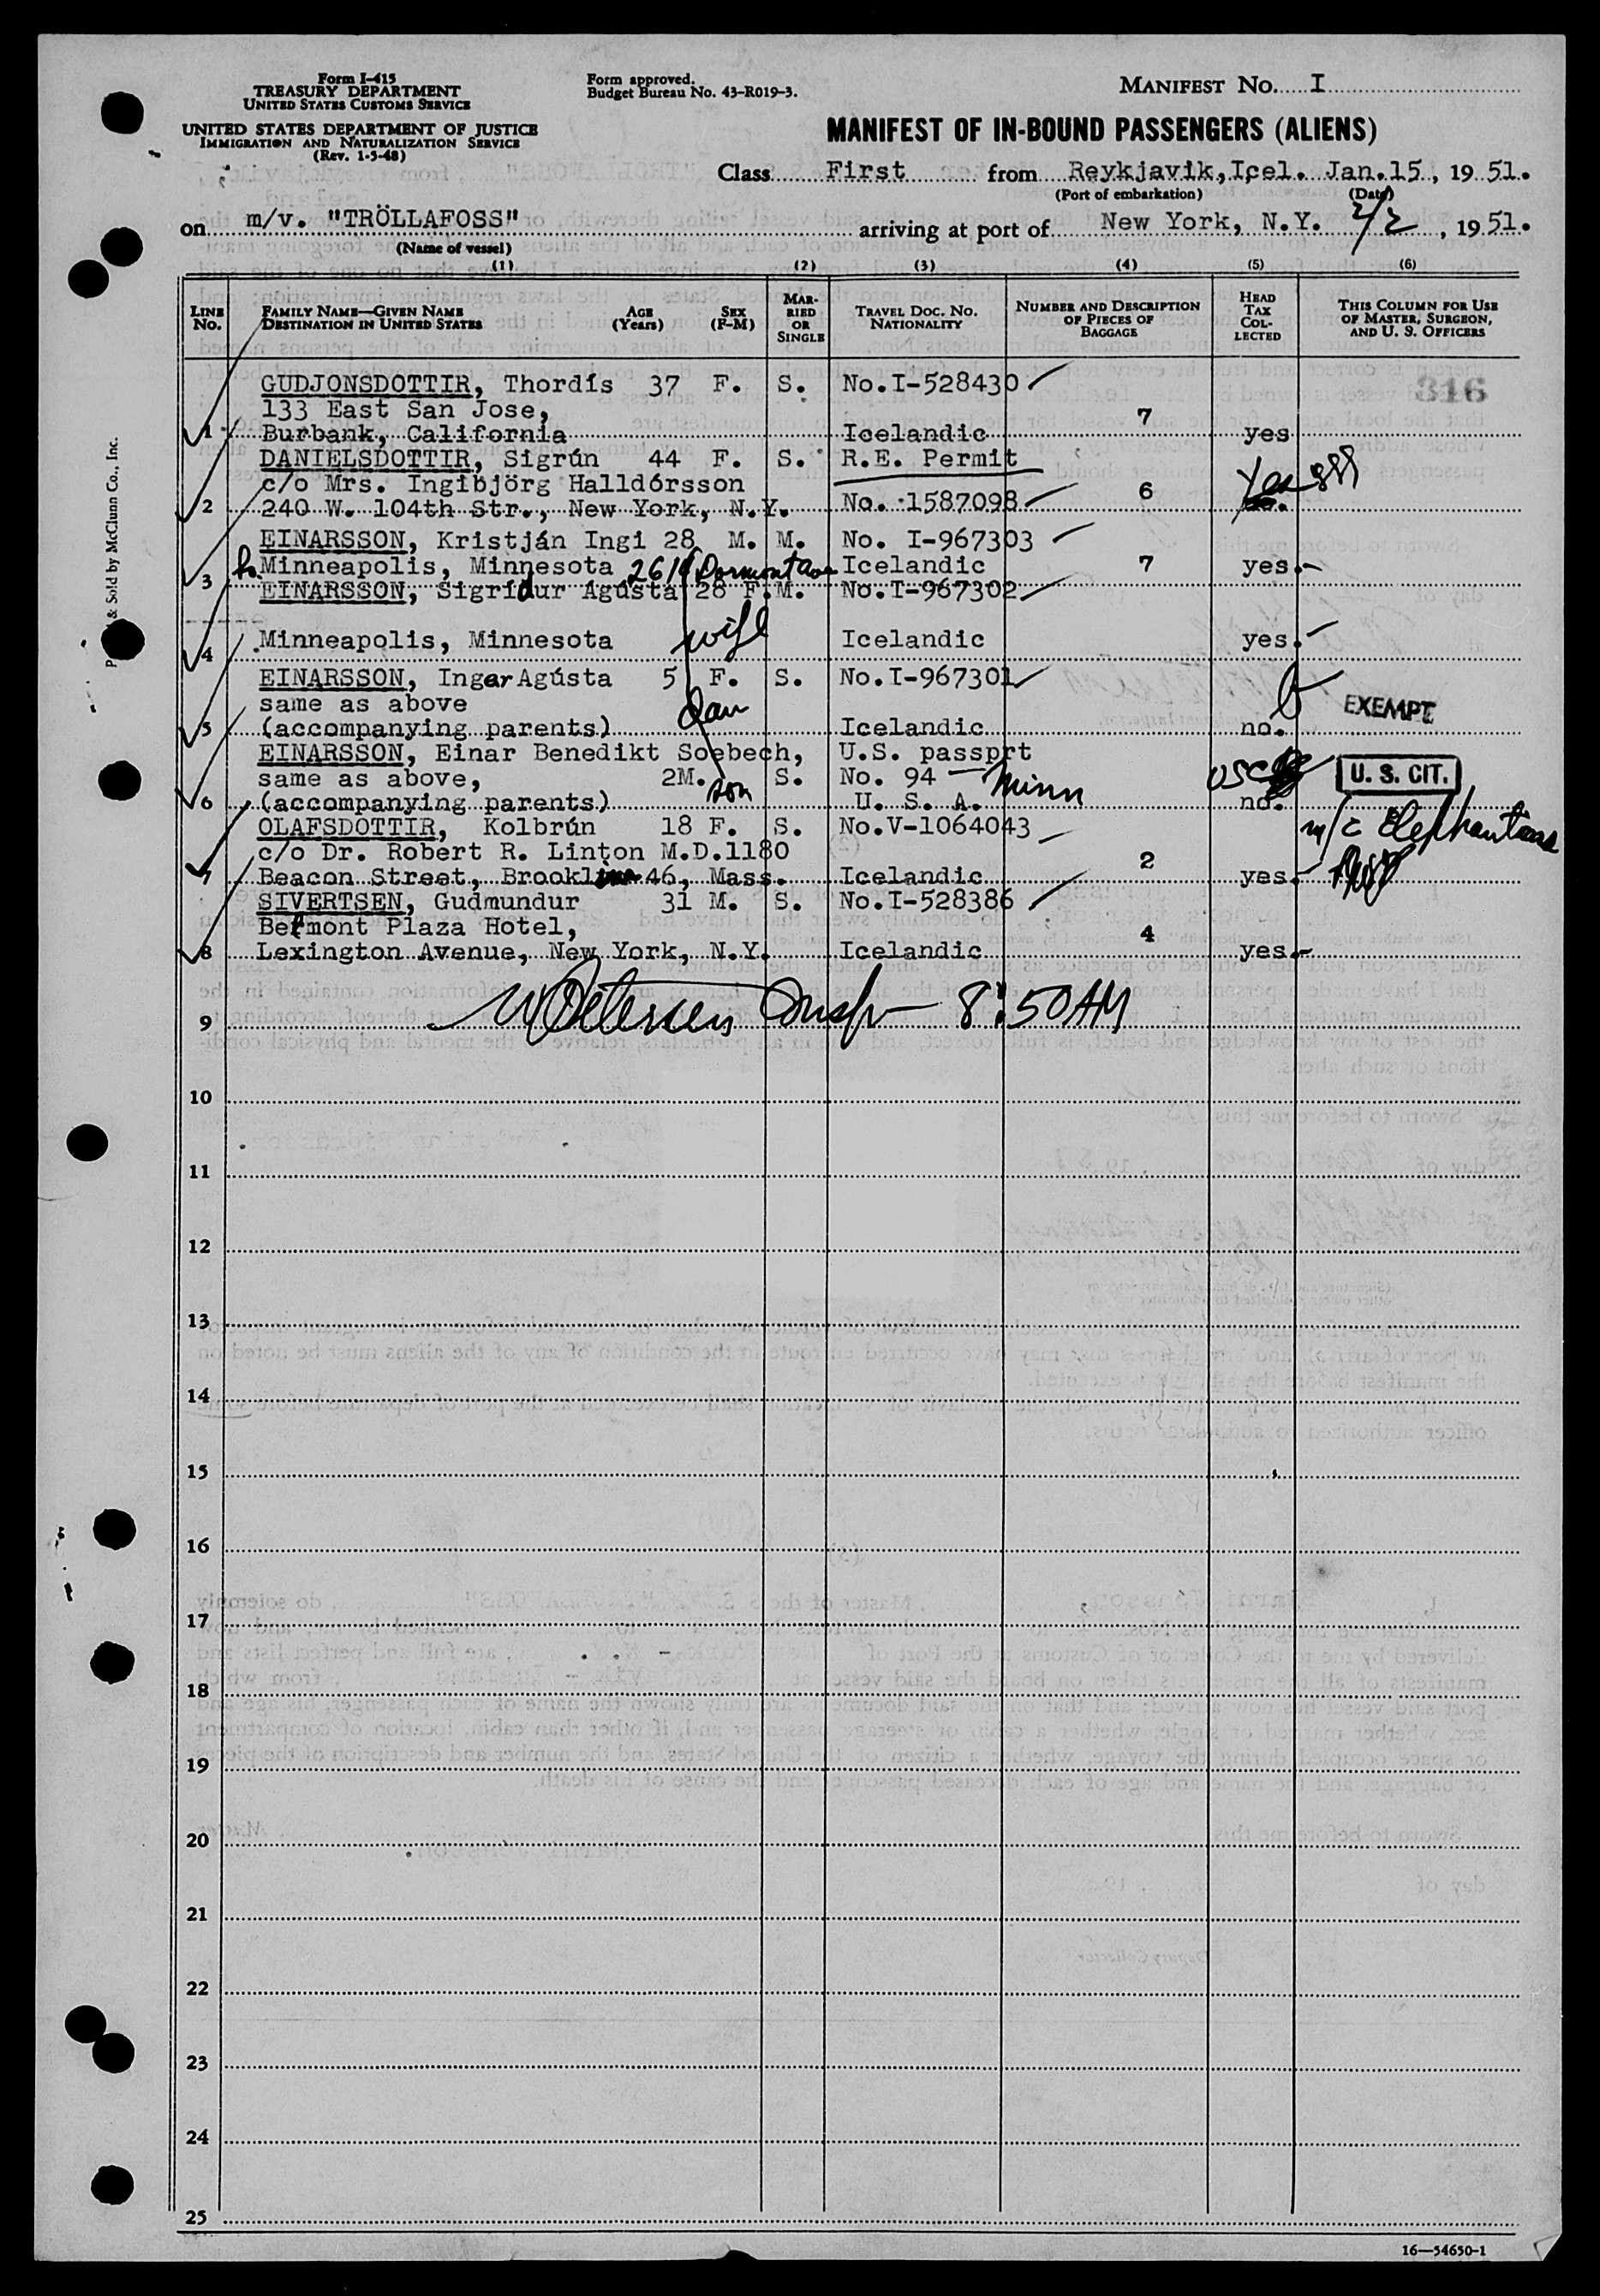 Form I-415
TREASURY DEPARTMENT
UNITED STATES CUSTOMS SERVICE
UNITED STATES DEPARTMENT OF JUSTICE
IMMIGRATION AND NATURALIZATION SERVICE
(Rev. 1-5-48)
Form approved.
Budget Bureau No. 43-R019-3.
MANIFEST No. I
MANIFEST OF IN-BOUND PASSENGERS (ALIENS)
Class First from Reykjavik, Icel. Jan.15, 1951.
(Port of embarkation) (Date)
on m/v. "TRÖLLAFOSS" arriving at port of New York, N.Y. 2/2, 1951.
(Name of vessel)
(1) (2) (3) (4) (5) (6)
LINE No.
FAMILY NAME—GIVEN NAME
DESTINATION IN UNITED STATES
AGE (Years)
SEX (F-M)
MARRIED OR SINGLE
TRAVEL DOC. NO.
NATIONALITY
NUMBER AND DESCRIPTION OF PIECES OF BAGGAGE
HEAD TAX COLLECTED
THIS COLUMN FOR USE OF MASTER, SURGEON, AND U. S. OFFICERS
316
GUDJONSDOTTIR, Thordís 37 F. S. No.I-528430
133 East San Jose, 7
1 Burbank, California Icelandic yes
DANIELSDOTTIR, Sigrún 44 F. S. R.E. Permit
c/o Mrs. Ingibjörg Halldórsson
2 240 W. 104th Str., New York, N.Y. No. 1587098 6 Yes
EINARSSON, Kristján Ingi 28 M. M. No. I-967303
3 Minneapolis, Minnesota Icelandic 7 yes.
EINARSSON, Sigrídur Agústa 28 F. M. No.I-967302
wife
4 Minneapolis, Minnesota Icelandic yes.
EINARSSON, Inger Agústa 5 F. S. No.I-967301
same as above dau EXEMPT
5 (accompanying parents) Icelandic no.
EINARSSON, Einar Benedikt Soebech, U.S. passprt
same as above, 2M. S. No. 94 Minn USC U. S. CIT.
6 (accompanying parents) son U. S. A. no.
OLAFSDOTTIR, Kolbrún 18 F. S. No.V-1064043 m/c
c/o Dr. Robert R. Linton M.D.1180 2
7 Beacon Street, Brookline 46, Mass. Icelandic yes.
SIVERTSEN, Gudmundur 31 M. S. No.I-528386
Belmont Plaza Hotel, 4
8 Lexington Avenue, New York, N.Y. Icelandic yes.
9 Petersen Insp 8:50AM
10
11
12
13
14
15
16
17
18
19
20
21
22
23
24
25
& Sold by McClunn Co., Inc.
16—54650-1